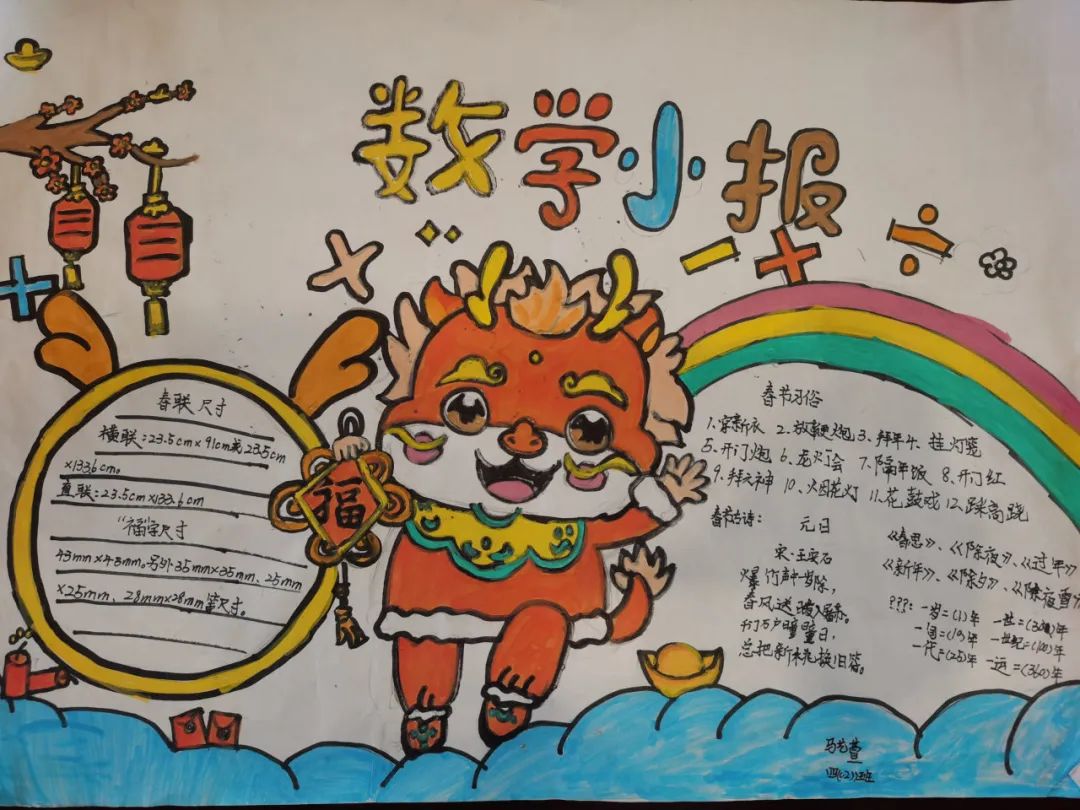 数学小报
春联尺寸
横联:23.5cm×91cm或23.5cm
×133.6cm。
直联:23.5cm×133.6cm
"福"字尺寸
43mm×43mm。另外35mm×35mm、25mm
×25mm、28mm×28mm等尺寸。
福
春节习俗
1、穿新衣 2、放鞭炮 3、拜年 4、挂灯笼
5、开门炮 6、龙灯会 7、隔年饭 8、开门红
9、拜天神 10、火因花灯 11、花鼓戏 12、踩高跷
春节古诗:
元日
宋·王安石
爆竹声中一岁除,
春风送暖入屠苏。
千门万户曈曈日,
总把新桃换旧符。
《春思》、《除夜》、《过年》
《新年》、《除夕》、《除夜雪》
???:一岁=(1)年 一世=(30)年
一旬=(10)年 一世纪=(100)年
一代=(25)年 一运=(360)年
四(2)班